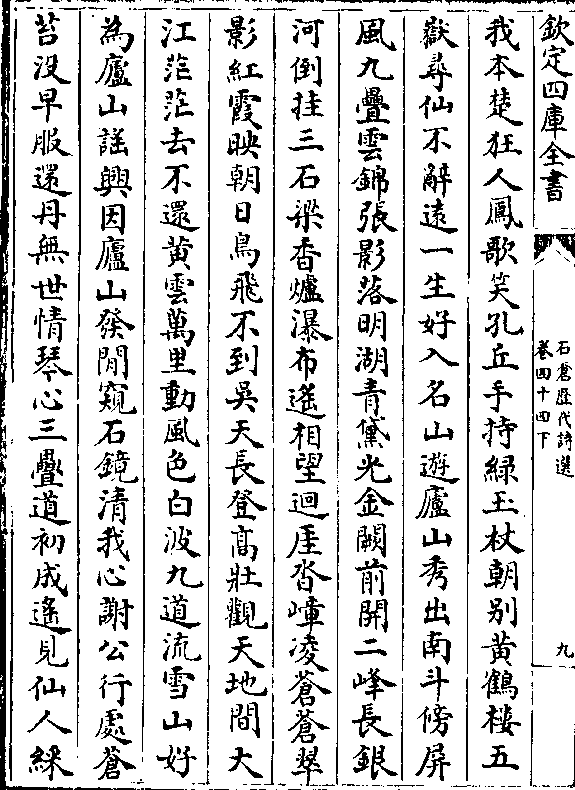 欽定四庫全書
石倉歷代詩選
卷四十四下
九
我本楚狂人鳳歌笑孔丘手持綠玉杖朝别黄鶴樓五
嶽尋仙不辭遠一生好入名山遊廬山秀出南斗傍屏
風九疊雲錦張影落明湖青黛光金闕前開二峰長銀
河倒挂三石梁香爐瀑布遙相望迴厓沓嶂凌蒼蒼翠
影紅霞映朝日鳥飛不到吳天長登髙壯觀天地間大
江茫茫去不還黄雲萬里動風色白波九道流雪山好
為廬山謡興因廬山發閒窺石鏡清我心謝公行處蒼
苔没早服還丹無世情琴心三疊道初成遙見仙人綵